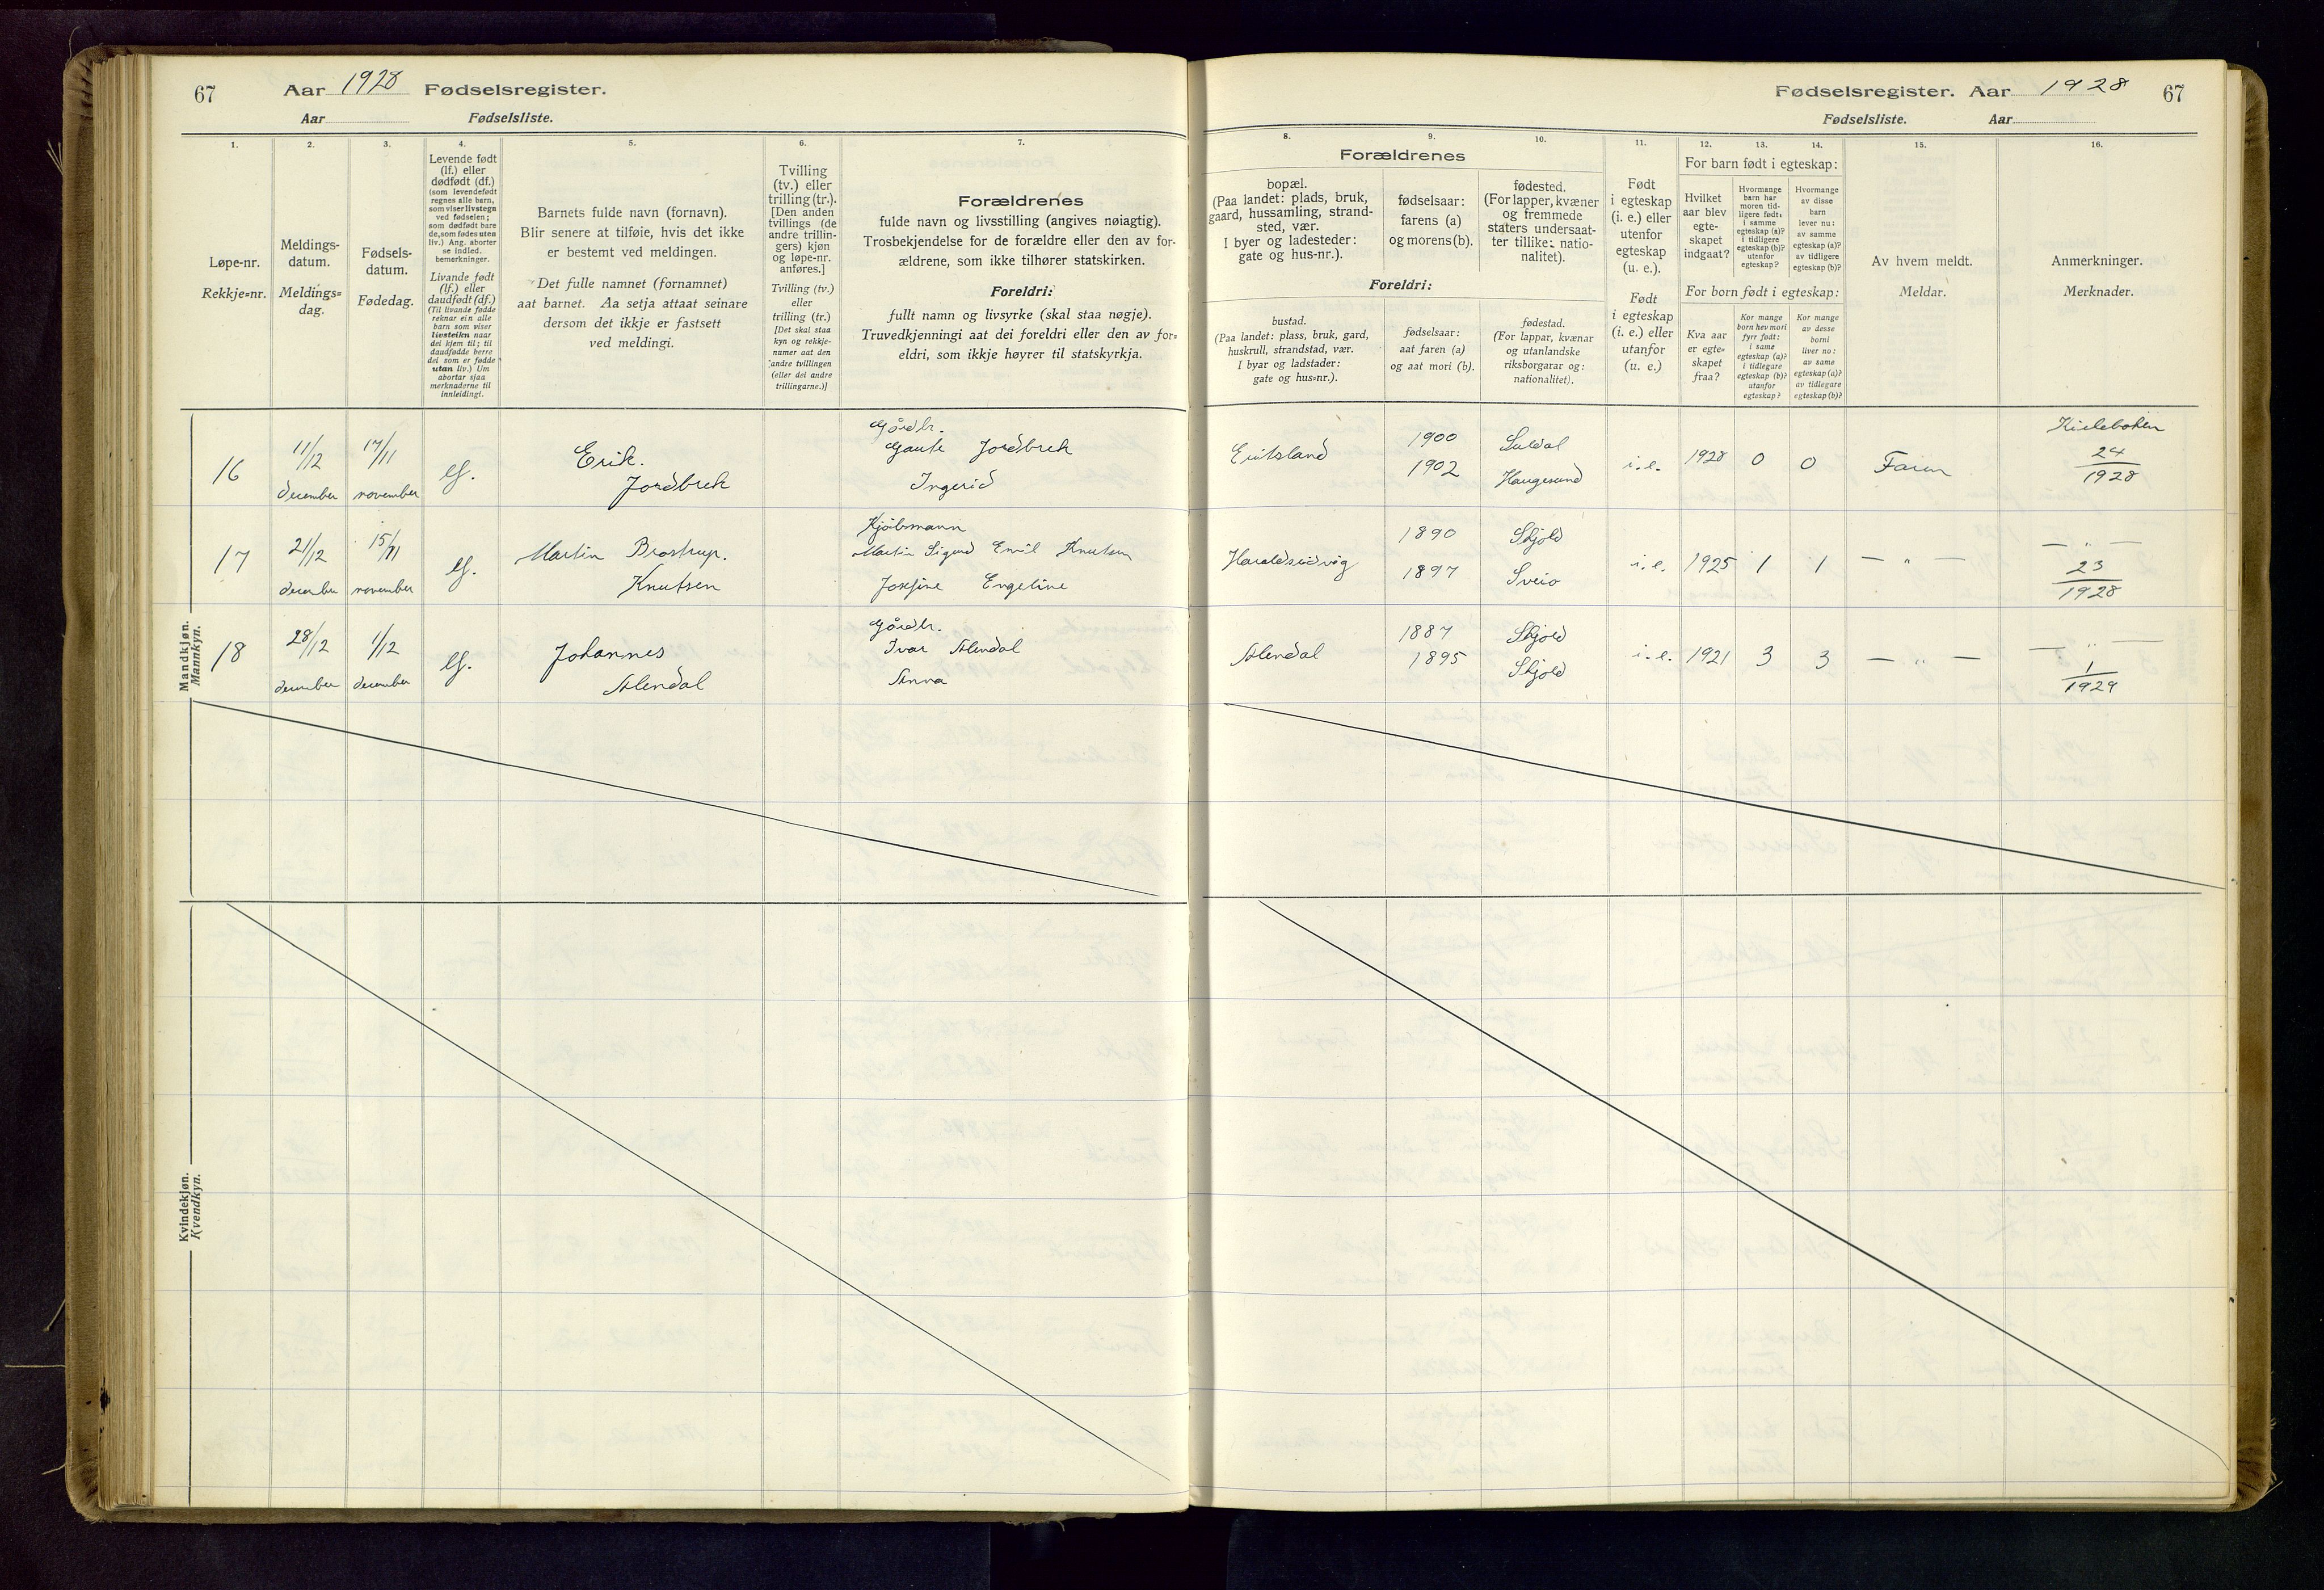 67 Aar 1928 Fødselsregister.
Aar Fødselsliste.
1.
Løpe-nr.
Rekkje=nr.
2.
Meldings-
datum.
Meldings=
dag.
3.
Fødsels-
datum.
Fødedag.
4.
Levende født
(lf.) eller
dødfødt (df.)
(som levendefødt
regnes alle barn,
som viser livstegn
ved fødselen;
som dødfødt bare
de, som fødes uten
liv.) Ang. aborter
se indled.
bemerkninger.
Livande født
(lf.) eller
daudfødt (df.)
(Til livande fødde
reknar ein alle
barn som viser
livsteikn naar
dei kjem til; til
daudfødde berre
dei som er fødde
utan liv.) Um
abortar sjaa
merknaderne til
innleidingi.
5.
Barnets fulde navn (fornavn).
Blir senere at tilføie, hvis det ikke
er bestemt ved meldingen.
Det fulle namnet (fornamnet)
aat barnet. Aa setja attaat seinare
dersom det ikkje er fastsett
ved meldingi.
6.
Tvilling
(tv.) eller
trilling (tr.).
[Den anden
tvillings (de
andre trillin-
gers) kjøn
og løpe-nr.
anføres.]
Tvilling (tv.)
eller
trilling (tr.)
[Det skal staa
kyn og rekkje-
numer aat den
andre tvillingen
(eller dei andre
trillingarne.)]
7.
Forældrenes
fulde navn og livsstilling (angives nøiagtig).
Trosbekjendelse for de forældre eller den av for-
ældrene, som ikke tilhører statskirken.
Foreldri:
fullt namn og livsyrke (skal staa nøgje).
Truvedkjenningi aat dei foreldri eller den av for=
eldri, som ikkje høyrer til statskyrkja.
Mandkjøn.
Mannkyn.
16
11/12
december
17/11
november
lf.
Erik.
Jordbrek
Gårdbr.
Gaute Jordbrek
Ingerid
17
21/12
december
15/11
november
lf.
Martin Brostrup.
Knutsen
Kjøbmann
Martin Sigurd Emil Knutsen
Josefine Engeline
18
28/12
december
1/12
december
lf.
Johannes
Alendal
Gårdbr.
Ivar Alendal
Anna
Kvindekjøn.
Kvendkyn.
Fødselsregister. Aar 1928 67
Fødselsliste. Aar
8. 9. 10.
Forældrenes
bopæl.
(Paa landet: plads, bruk,
gaard, hussamling, strand-
sted, vær.
I byer og ladesteder:
gate og hus-nr.).
fødselsaar:
farens (a)
og morens (b).
fødested.
(For lapper, kvæner
og fremmede
staters undersaat-
ter tillike: natio-
nalitet).
Foreldri:
bustad.
(Paa landet: plass, bruk, gard,
huskrull, strandstad, vær.
I byar og ladstader:
gate og hus=nr.).
fødselsaar:
aat faren (a)
og aat mori (b).
fødestad.
(For lappar, kvænar
og utanlandske
riksborgarar og:
nationalitet).
11.
Født
i egteskap
(i. e.) eller
utenfor
egteskap
(u. e.).
Født
i egteskap
(i. e.) eller
utanfor
(u. e.)
12. 13. 14.
For barn født i egteskap:
Hvilket
aar blev
egte-
skapet
indgaat?
Hvormange
barn har
moren tid-
ligere født:
i samme
egteskap (a)?
i tidligere
egteskap (b)?
utenfor
egteskap?
Hvormange
av disse
barn
lever nu:
av samme
egteskap (a)?
av tidligere
egteskap (b)?
For born født i egteskap:
Kva aar
er egte=
skapet
fraa?
Kor mange
born hev mori
fyrr født:
i same
egteskap (a)?
i tidlegare
egteskap (b)?
utanfor
egteskap?
Kor mange
av desse
borni
liver no:
av same
egteskap (a)?
av tidlegare
egteskap (b)?
15.
Av hvem meldt.
Meldar.
16.
Anmerkninger.
Merknader.
1900
1902
Suldal
Haugesund
i. e.
1928
0
0
Faren
Kirkeboken
24
1928
Haraldseidvåg
1890
1897
Skjold
Sveio
i. e.
1925
1
1
— " —
— " —
23
1928
Alendal
1887
1895
Skjold
Skjold
i. e.
1921
3
3
— " —
— " —
1
1929